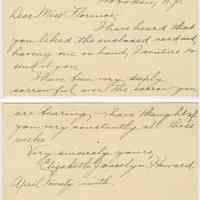 Dear Miss Florence,
I have heard that
you liked the enclosed card and
having one on hand, I venture to
send it you.
I have been very deeply
sorrowful over the sorrow you
are bearing, I have thought of
you very constantly all these
weeks.
Very sincerely yours,
Elizabeth Howard.
April twenty ninth.